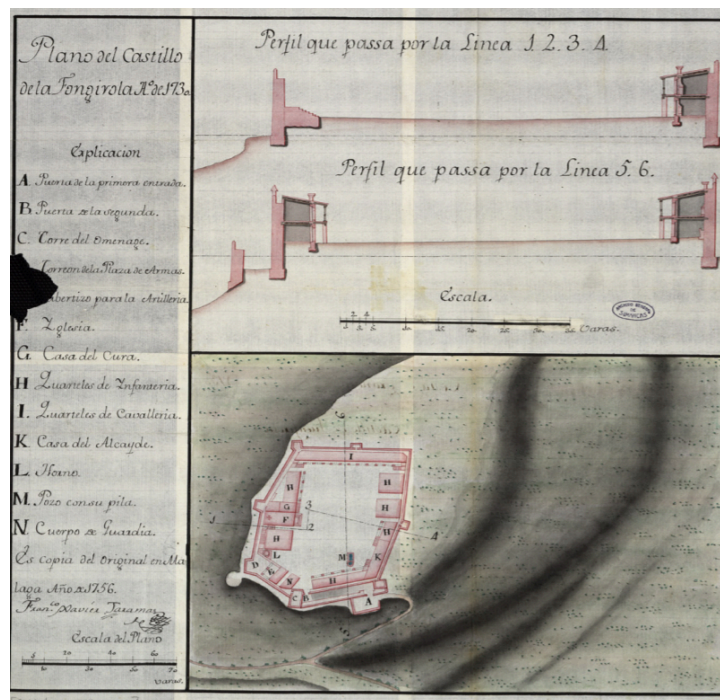 Plano del Castillo
de la Fongirola Aº. de 1730
Explicacion
A. Puerta de la primera entrada.
B. Puerta de la segunda.
C. Torre del Omenage.
Torreon de la Plaza de Armas.
bertizo para la Artilleria
F. Yglesia.
G. Casa del Cura.
H Quarteles de Ynfanteria.
I. Quarteles de Cavalleria.
K. Casa del Alcayde.
L. Horno.
M. Pozo con su pila.
N. Cuerpo de Guardia.
Es copia del Original en Ma
laga Año de 1756.
Franco. Xavier
Escala del Plano
5 20 40 60
10 70
varas.
Perfil que passa por la Linea 1. 2. 3. 4.
Perfil que passa por la Linea 5. 6.
Escala.
Varas.
SIMANCAS
6
I
H
H
G
3
F
2
1
4
H
H
L
M
K
D
K
N
H
C
B
A